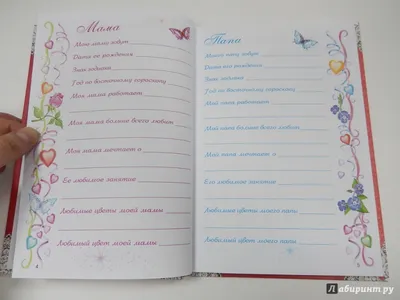 Мама
Мою маму зовут
Дата её рождения
Знак зодиака
Год по восточному гороскопу
Моя мама работает
Моя мама больше всего любит
Моя мама мечтает о
Её любимое занятие
Любимые цветы моей мамы
Любимый цвет моей мамы
Папа
Моего папу зовут
Дата его рождения
Знак зодиака
Год по восточному гороскопу
Мой папа работает
Мой папа больше всего любит
Мой папа мечтает о
Его любимое занятие
Любимые цветы моего папы
Любимый цвет моего папы
Лабиринт.ру